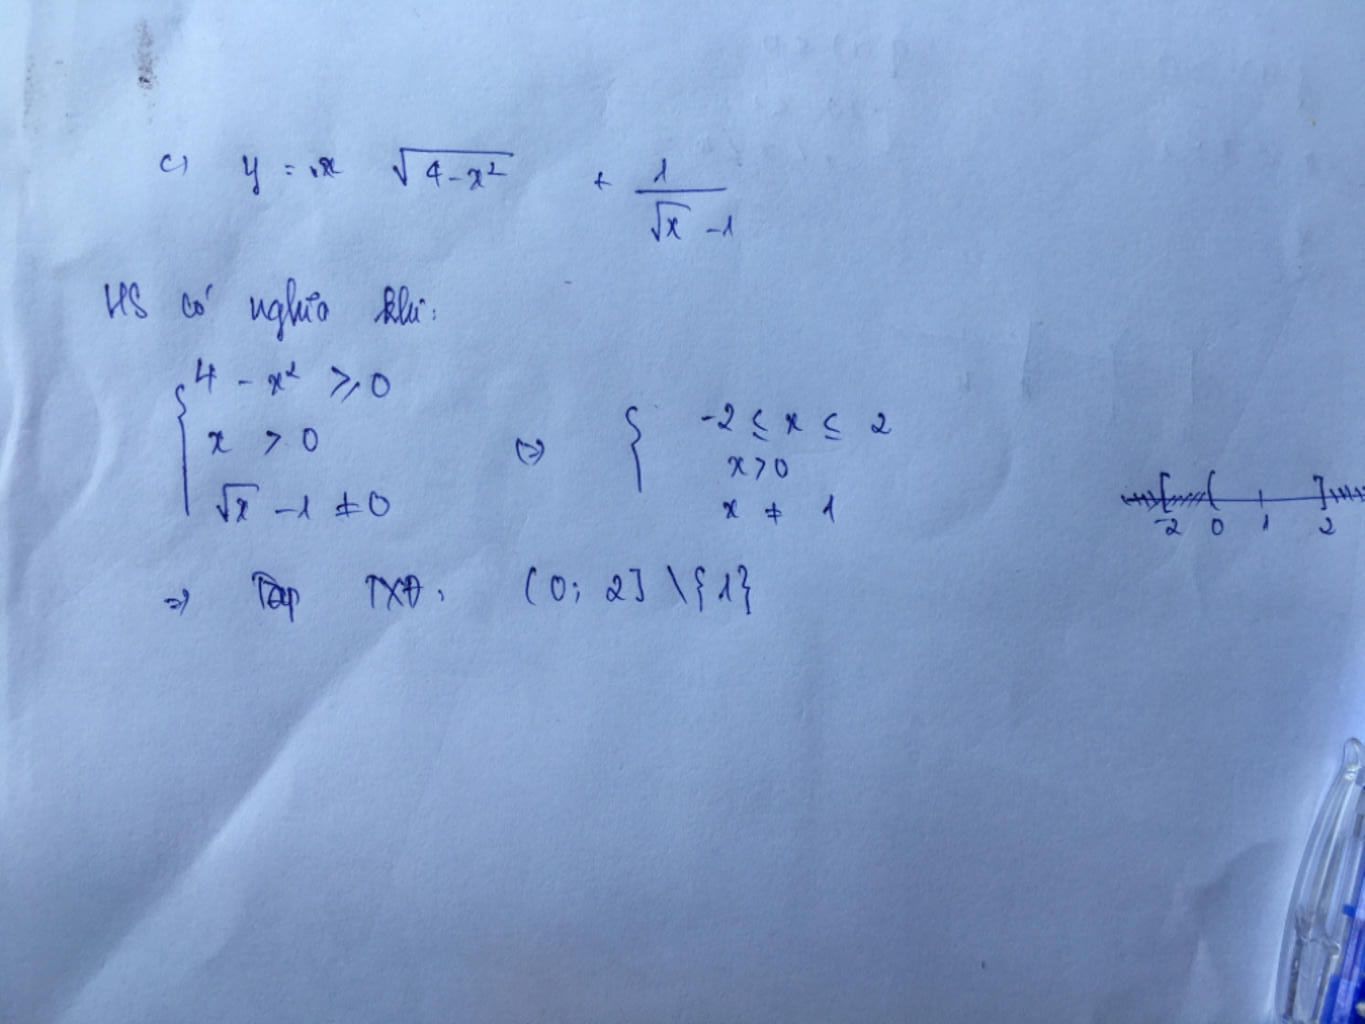 c) y = x √(4-x²) + 1/(√x -1)
HS có nghĩa khi:
{ 4 - x² ⩾ 0
x > 0 (=) { -2 ≤ x ≤ 2
x > 0
√x - 1 ≠ 0 x ≠ 1
-2 0 1 2
=> Tập TXĐ: (0; 2] \ {1}